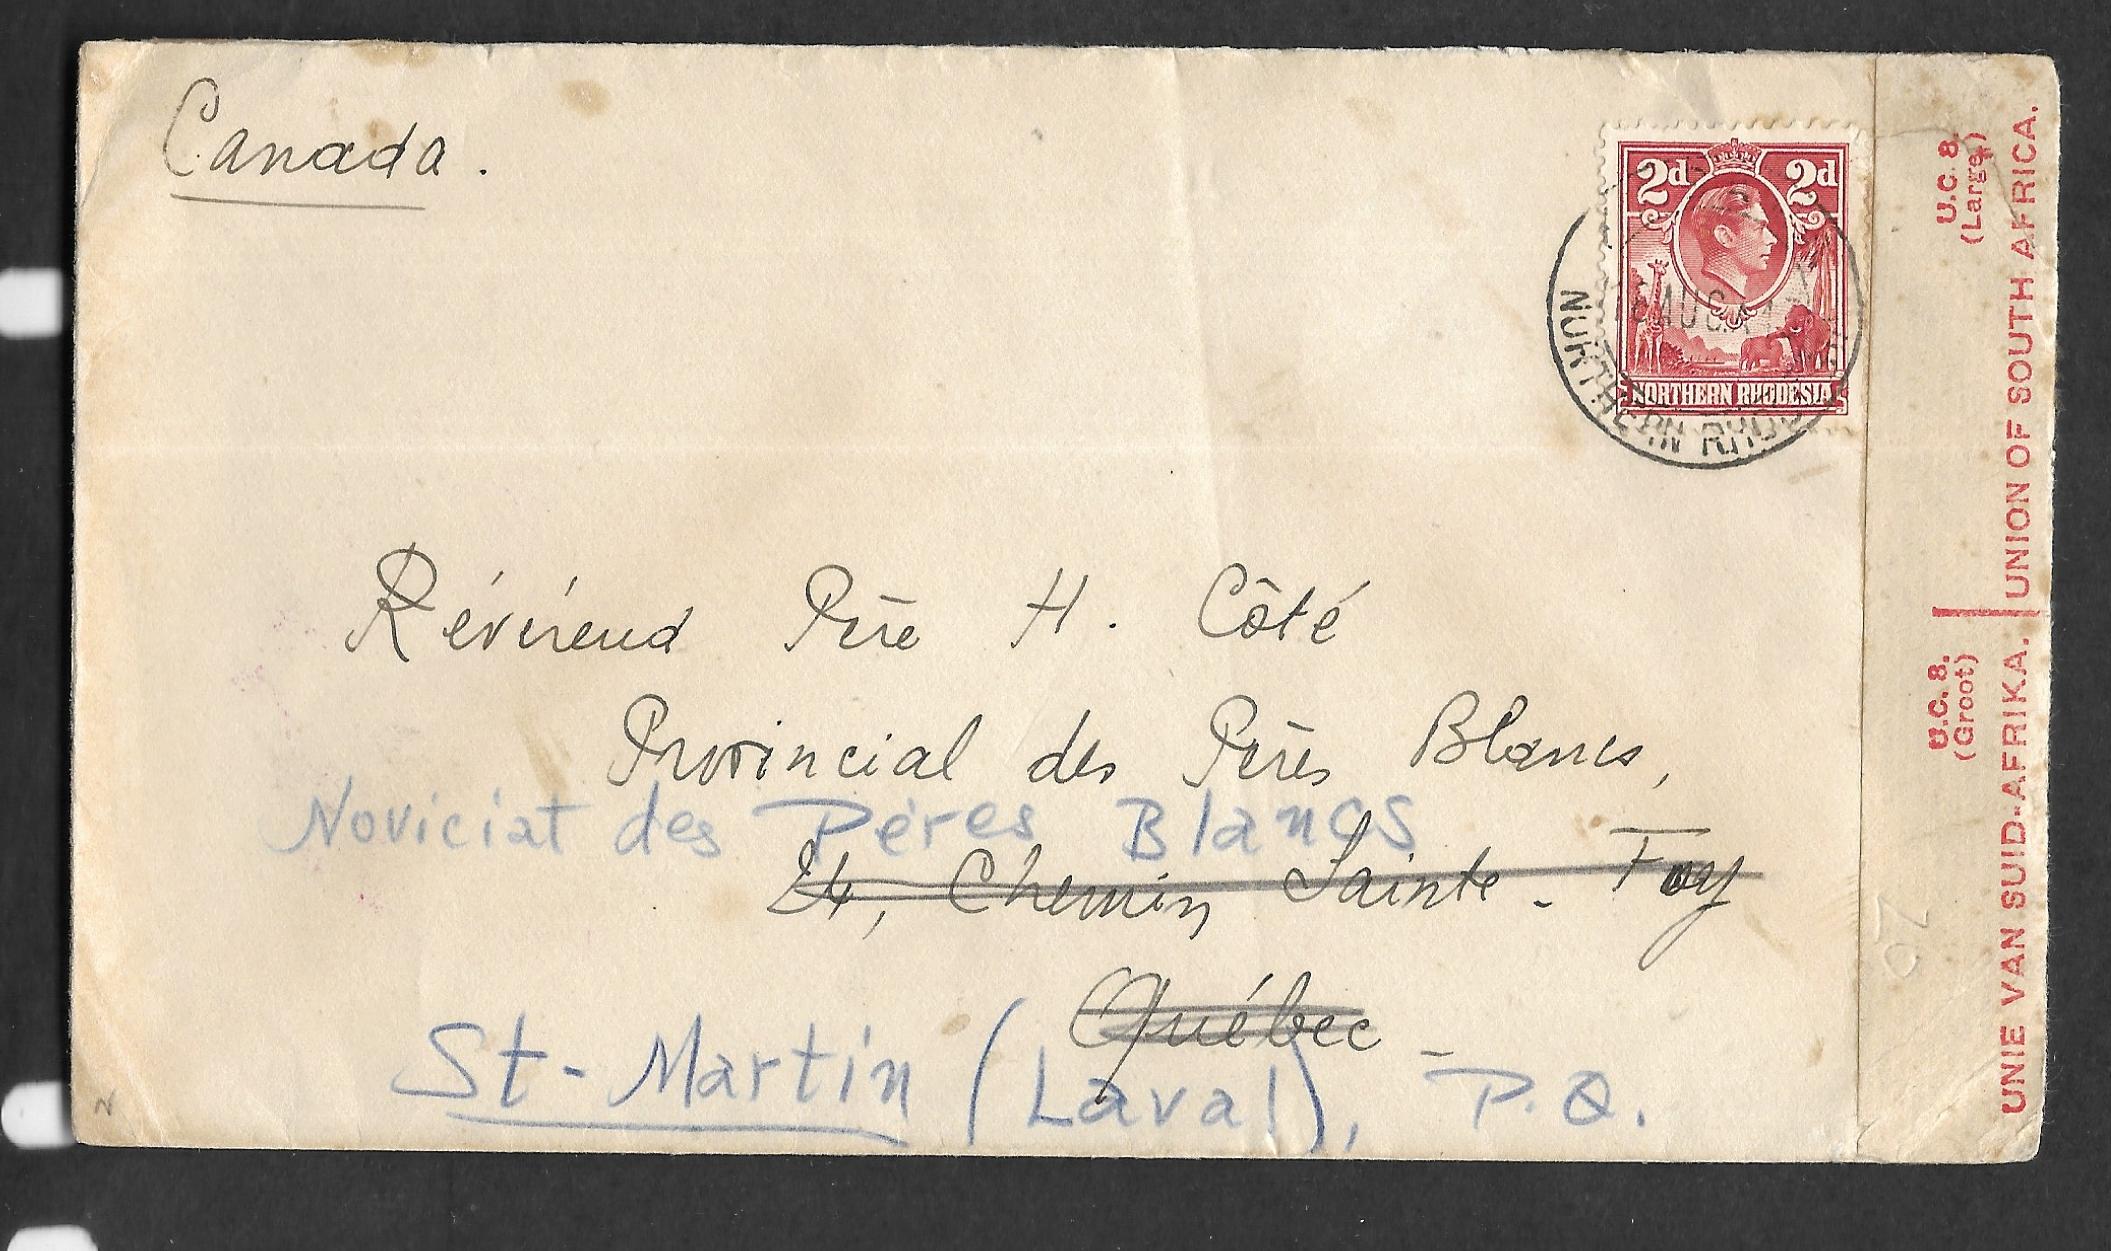 Canada.
2d 2d
AUG
NORTHERN RHODESIA
NORTHERN
Révérend Père H. Côté
Provincial des Pères Blancs,
Noviciat des Pères Blancs
24, Chemin Sainte-Foy
Québec
St-Martin (Laval), P.Q.
U.C. 8. (Groot)
U.C. 8. (Large)
UNIE VAN SUID-AFRIKA. | UNION OF SOUTH AFRICA.